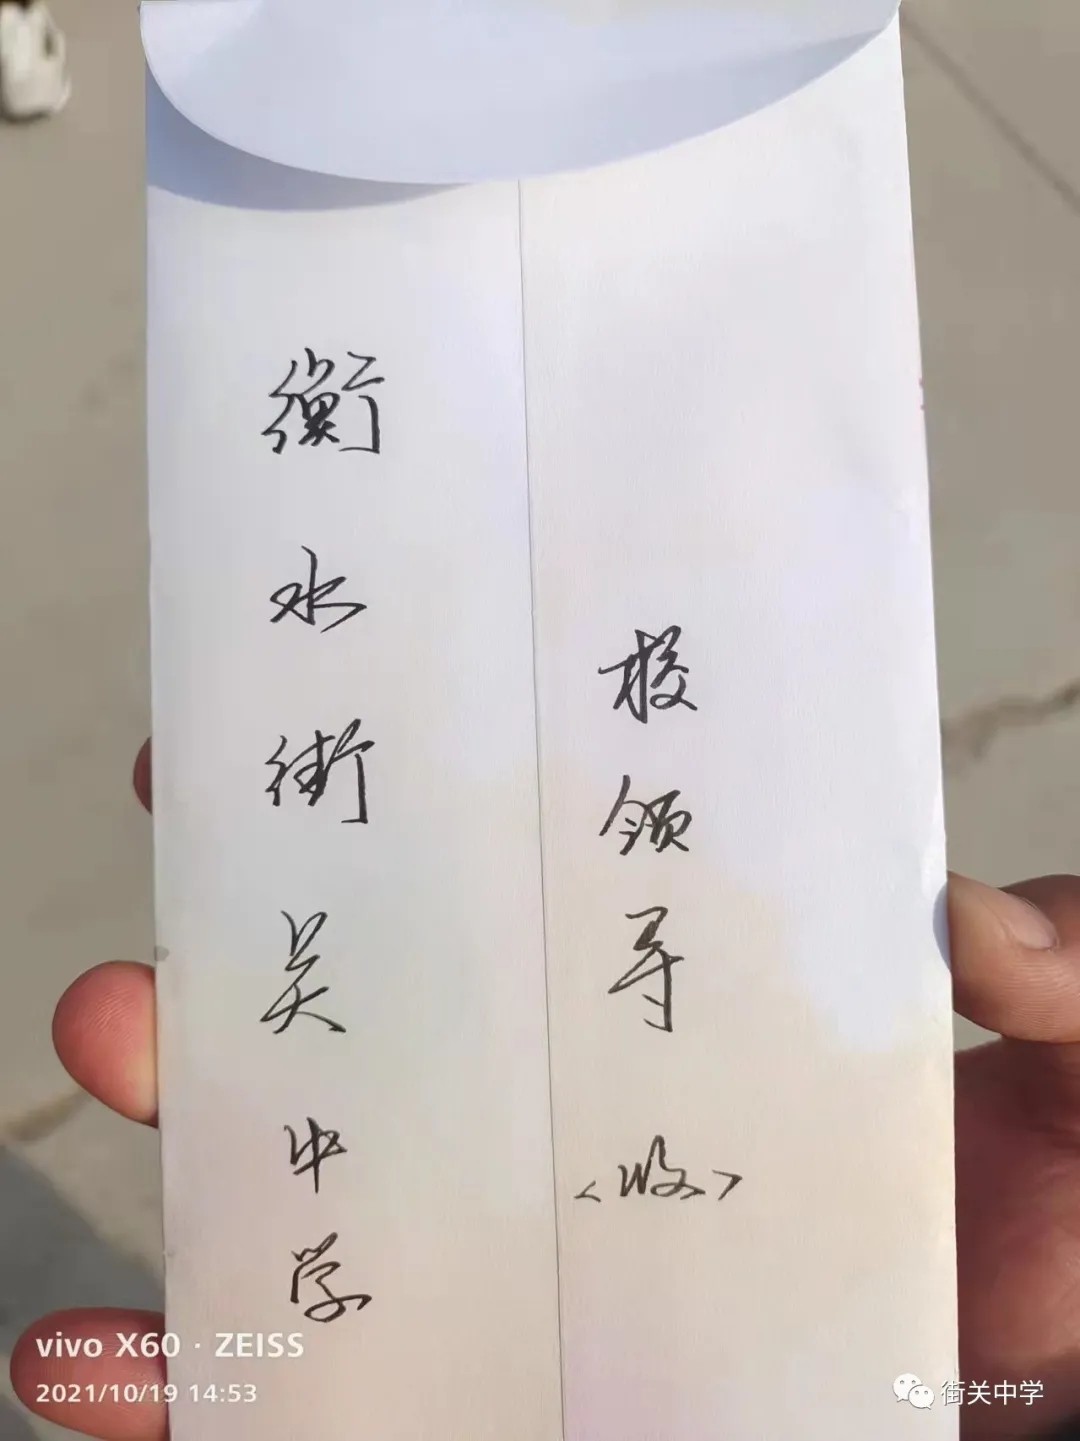 衡水街关中学
校领导
<收>
vivo X60 · ZEISS
2021/10/19 14:53
街关中学